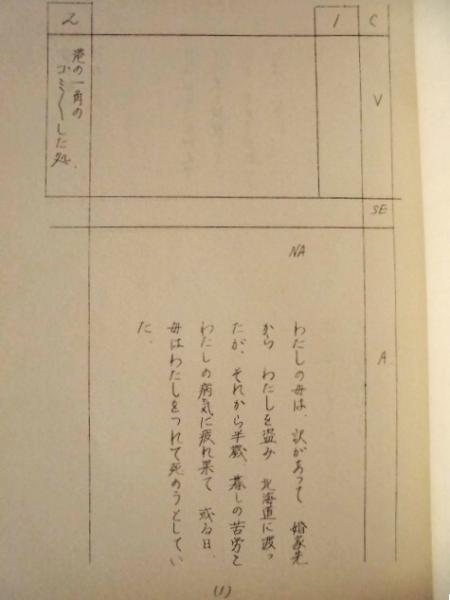 C
V
SE
A
1
NA
わたしの母は、訳があって 婚家先
から わたしを盗み 北海道に渡っ
たが、それから半歳、暮しの苦労と
わたしの病気に疲れ果て 或る日、
母はわたしをつれて死のうとしてい
た。
2
港の一角の
ゴミ〱した処。
(1)